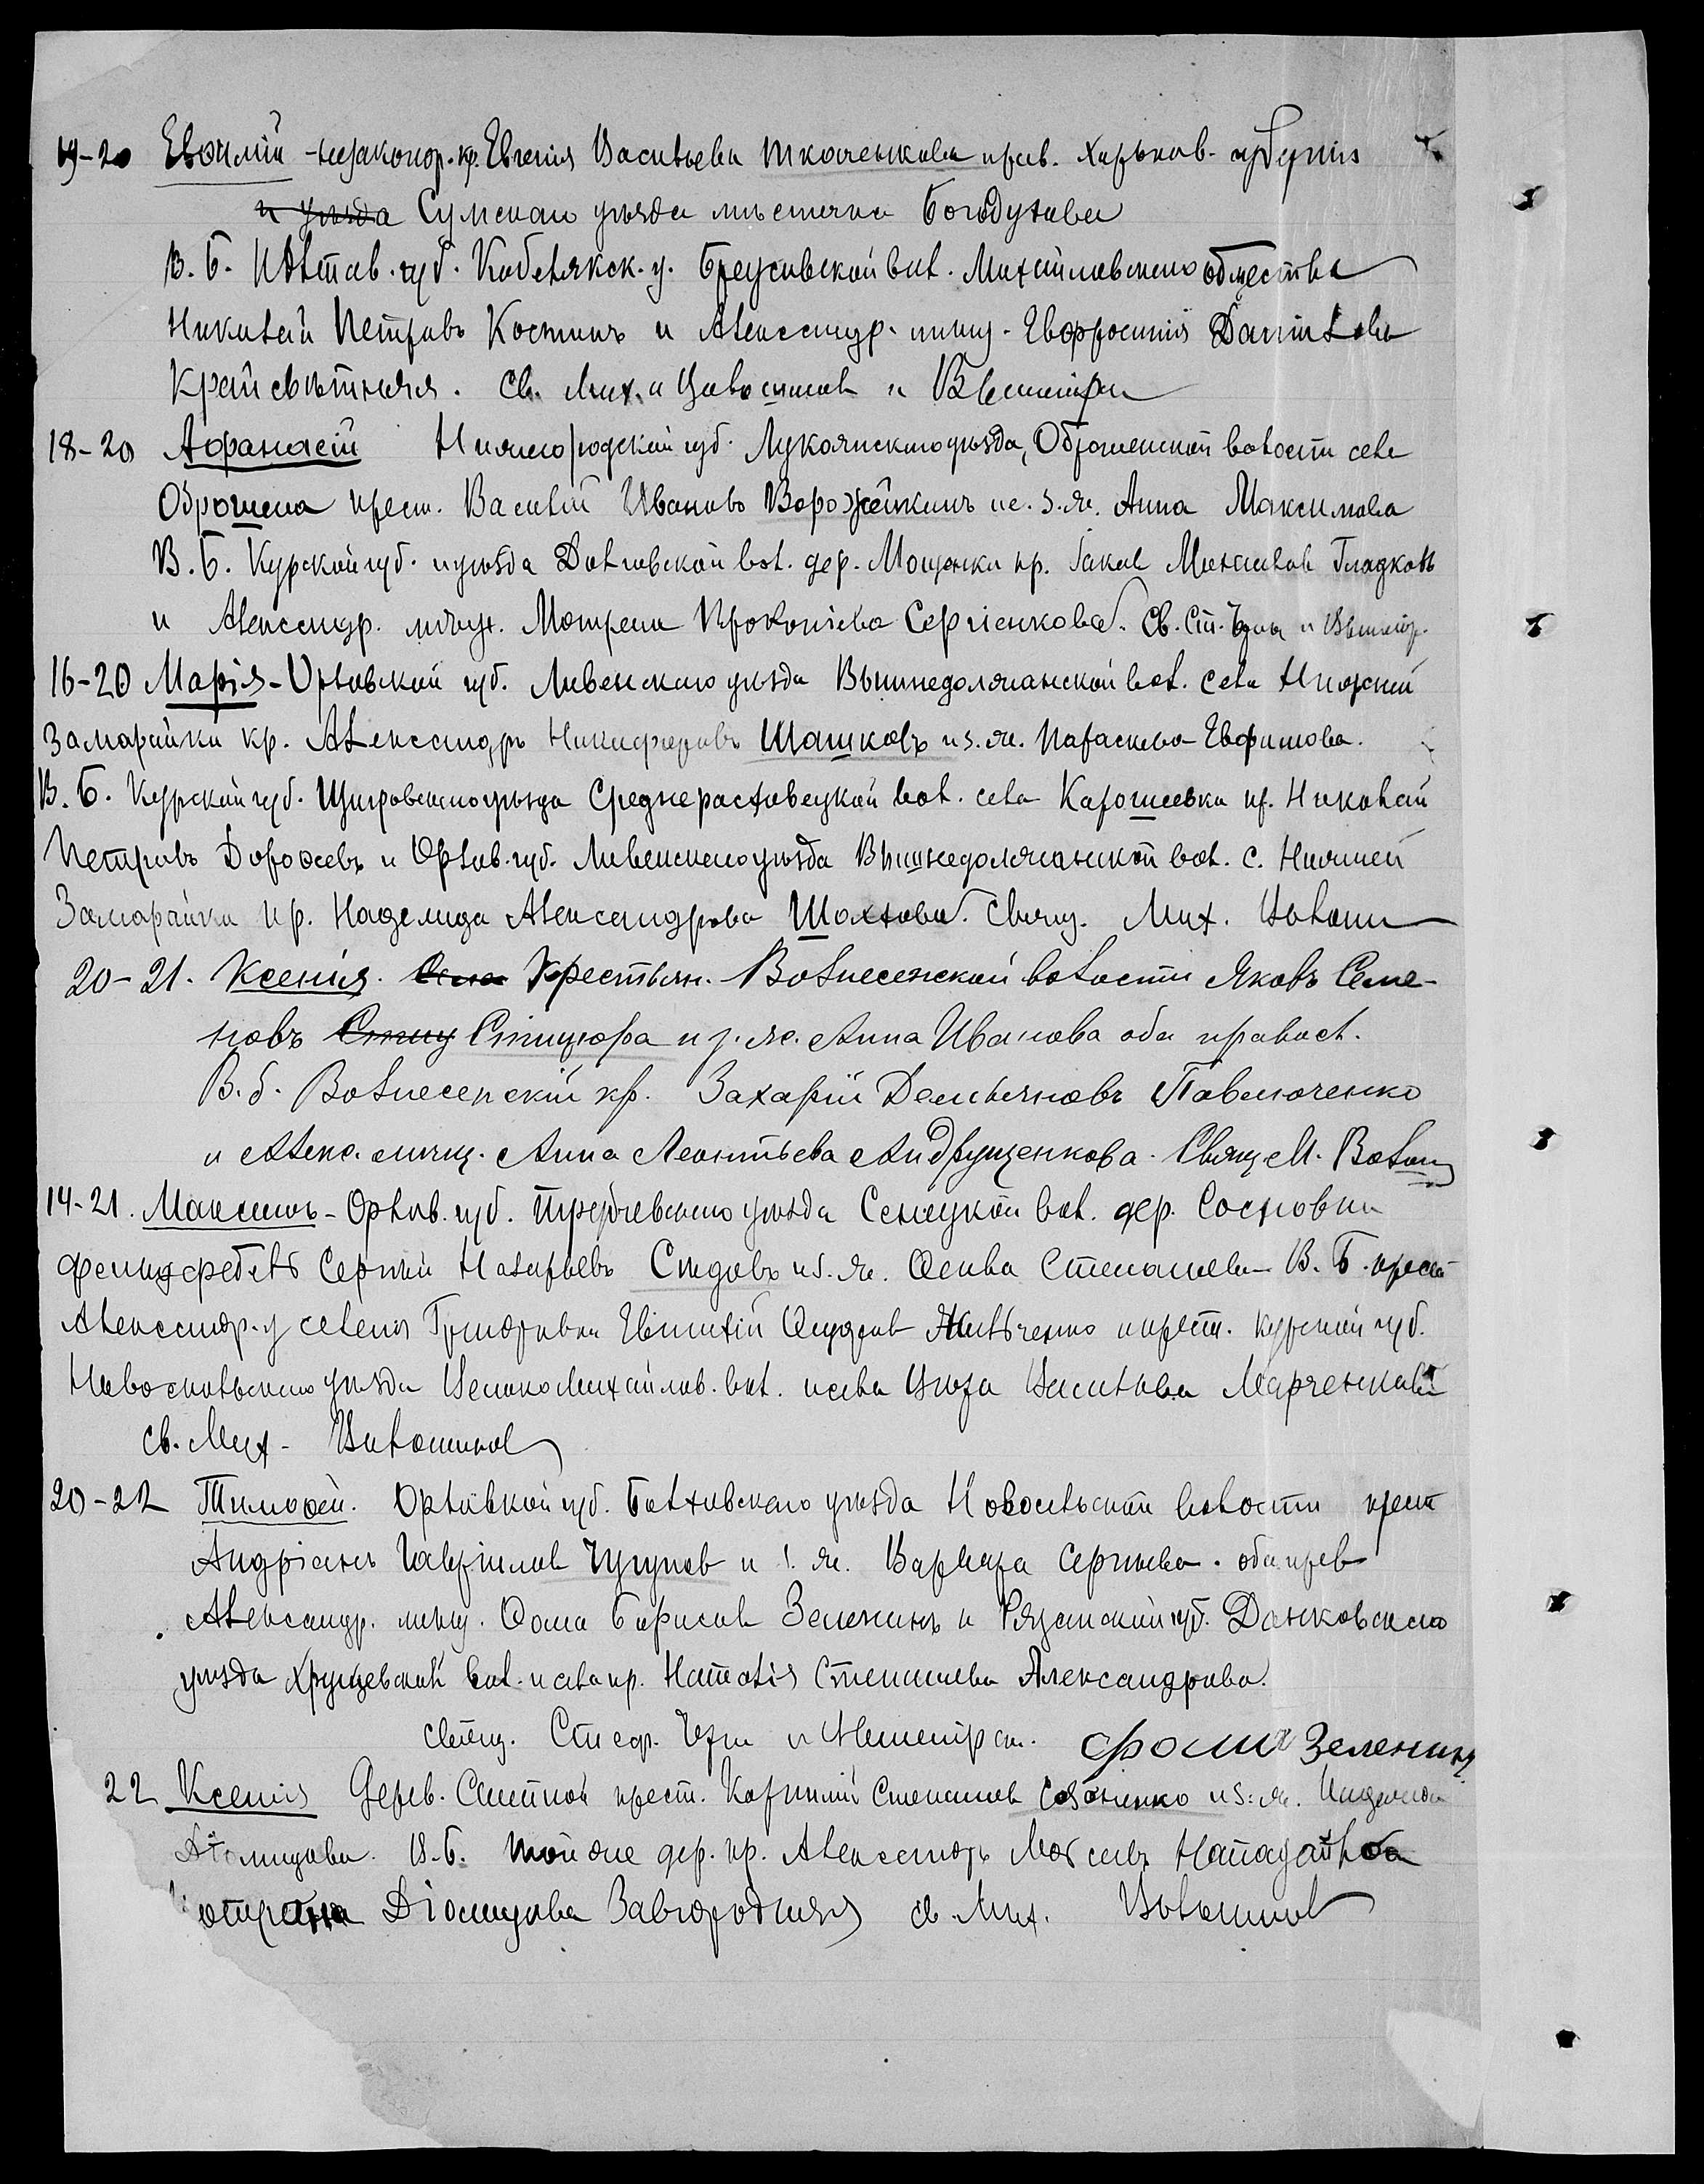 19-20 Евѳимій - незаконор. кр. Евгенія Васильева Ткаченкова прав. Харьков. губерніи
и уѣзда Сумскаго уѣзда мѣстечка Богодухова
В. Б. Полтав. губ. Кобелякск. у. Бреусовской вол. Михайловскаго общества
Николай Петровъ Костинъ и Александр. мѣщ. Евфросинія Данилова
Крайсвѣтняя. Св. Мих. Волошинов и
18-20 Афанасій Нижегородской губ. Лукоянскаго уѣзда, Оброченской волости села
Оброчена крест. Василій Ивановъ Ворожейкинъ и з. ж. Анна Максимова
В. Б. Курской губ. и уѣзда Долговской вол. дер. Мощенки кр. Іаков Михаилов Гладковъ
и Александр. мѣщ. Мотрена Прокопіева Сергіенкова. Св. Ст. и
16-20 Марія - Орловской губ. Ливенскаго уѣзда Вышнедолжанской вол. села Нижней
Замарайки кр. Александръ Никифоровъ Шашковъ и з. ж. Параскева Евфимова.
В. Б. Курской губ. Щигровскаго уѣзда Среднерастовецкой вол. села Карошеевка кр. Николай
Петровъ Дорожевъ и Орлов. губ. Ливенскаго уѣзда Вышнедолжанской вол. с. Нижней
Замарайки кр. Надежда Александрова Шахтова. Свящ. Мих. Волошин
20-21. Ксенія. Крестьян. Вознесенской волости Яковъ Семе-
новъ Стицюра и з. ж. Анна Иванова оба правосл.
В. б. Вознесенскій кр. Захарій Демьяновъ Павлюченко
и Алекс. мѣщ. Анна Леонтьева Андрущенкова. Свящ. М. Волош
14-21. Максимъ - Орлов. губ. Трубчевскаго уѣзда Селецкой вол. дер. Сосновки
фельдфебель Сергій Назарьевъ Сидовъ и з. ж. Ѳекла Степанова В. Б. крест
Александр. у селенія Григоровки Евтихій Ѳедоров Жильченко и крест. Курской губ.
Новооскольскаго уѣзда Великомихайлов. вол. и села Васильева Марченкова
св. Мих. Волошинов
20-22 Тимоѳей. Орловской губ. Болховскаго уѣзда Новосельской волости крест
Андріанъ Гавріилов Чугунов и з. ж. Варвара Сергѣева. оба прав
Александр. мѣщ. Ѳома Борисов Зеленинъ и Рязанской губ. Данковскаго
уѣзда Хрущевской вол. и села кр. Наталія Степанова Александрова.
свящ. Стеф. и Фома Зеленинъ
22 Ксенія Дерев. крест. Корнилій Степанов и з. ж.
Діомидова. В. Б. той же дер. кр. Александръ Моѵсеевъ
Діомидова Завгородняя св. Мих. Волошинов